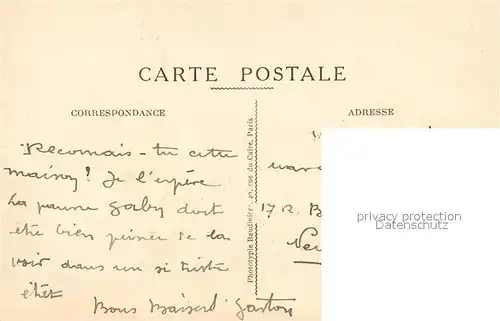 CARTE POSTALE
CORRESPONDANCE
ADRESSE
Reconnais-tu cette
maison! Je l'espère
La pauvre Gaby doit
etre bien peinée de la
voir dans un si triste
état
Bons Baisers Gaston
Phototypie Baudinière, rue du Caire, Paris
17 R. B
privacy protection
Datenschutz